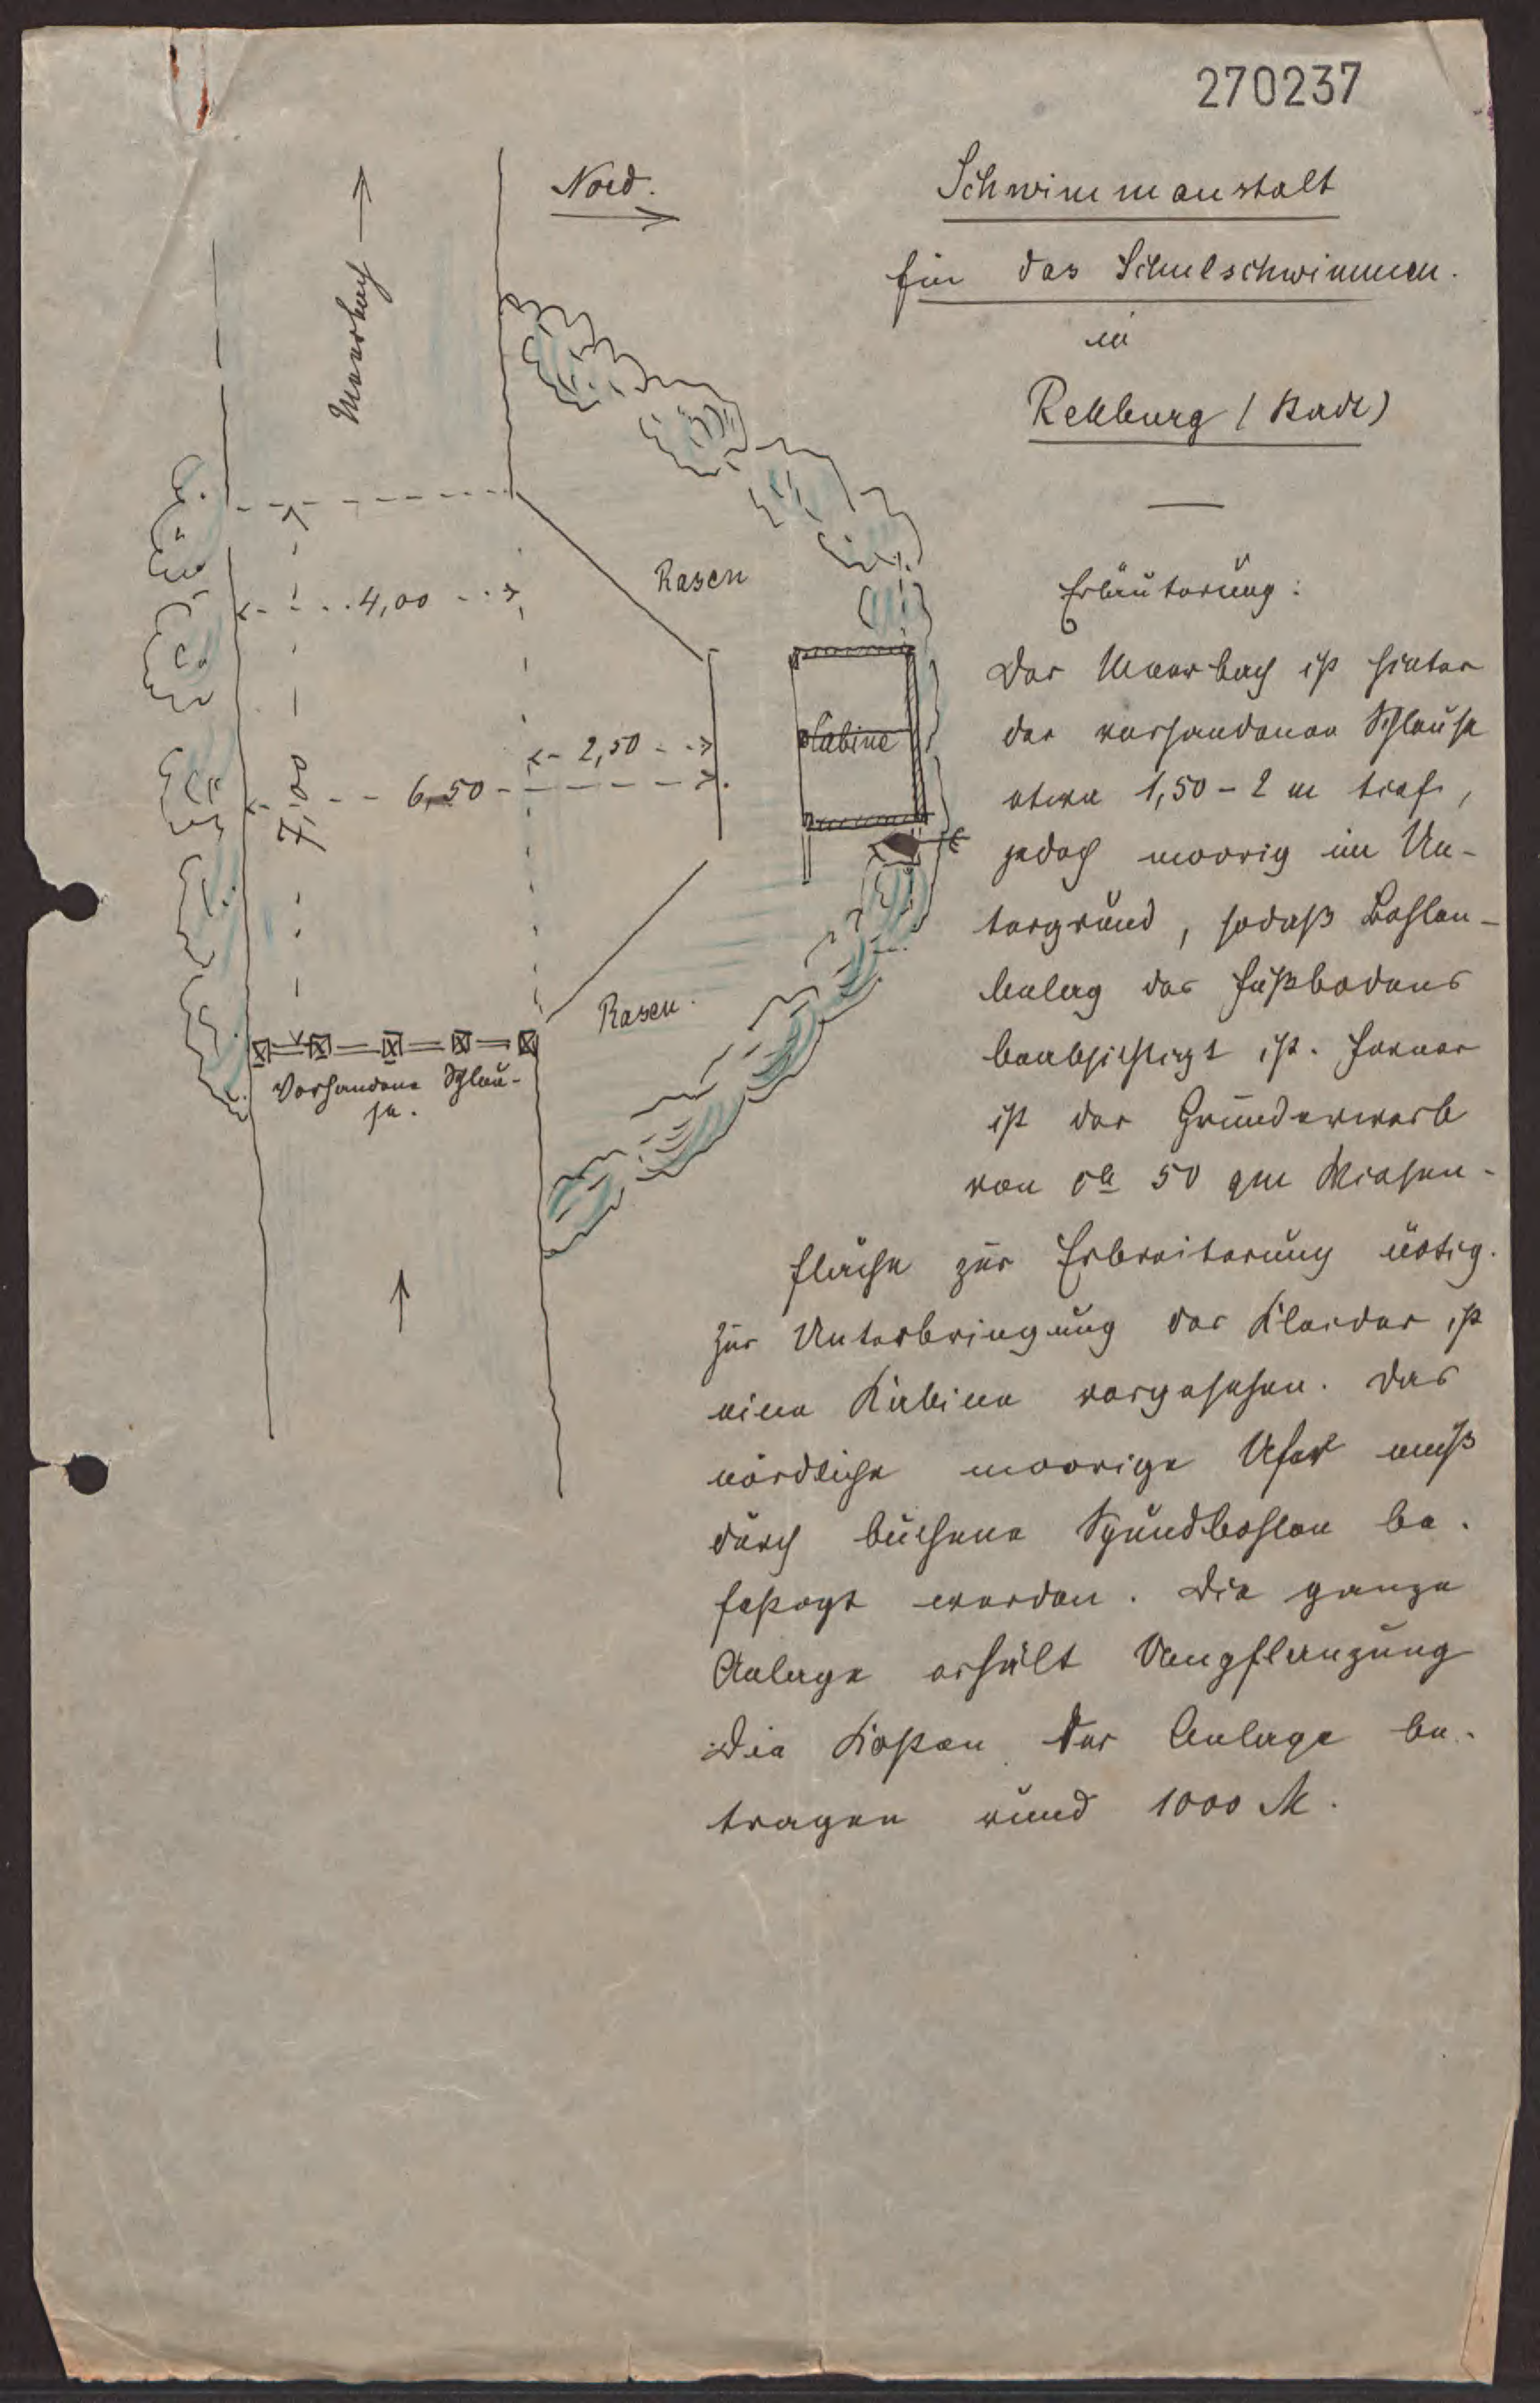 270237
Schwimmanstalt
für das Schulschwimmen.
in
Rehburg (Stadt)
Nord.
Meerbach
Rasen
4,00
2,50
6,50
7,00
Cabine
Rasen.
Vorhandene Schleu-
se.
Erläuterung:
Der Meerbach ist hinter
der vorhandenen Schleuse
etwa 1,50 - 2 m tief,
jedoch moorig im Un-
tergrund, sodaß Bohlen-
belag des Fußbodens
beabsichtigt ist. Ferner
ist der Grunderwerb
von ca 50 qm Wiesen-
fläche zur Erbreiterung nötig.
Zur Unterbringung der Kleider ist
eine Kabine vorgesehen. Das
nördliche moorige Ufer muß
durch buchene Spundbohlen be-
festigt werden. Die ganze
Anlage erhält Umpflanzung
Die Kosten der Anlage be-
tragen rund 1000 M.